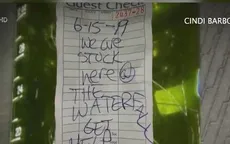 Guest Check
CINDI BARBO
6-15-19
WE ARE
STUCK
HERE
THE
WATERFALL
GET
HELP